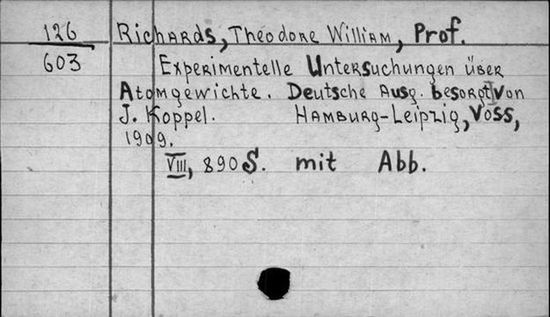 126
603
Richards, Theodore William, Prof.
Experimentelle Untersuchungen über
Atomgewichte. Deutsche Ausg. besorgt von
J. Koppel. Hamburg-Leipzig, Voss,
1909.
VIII, 890 S. mit Abb.